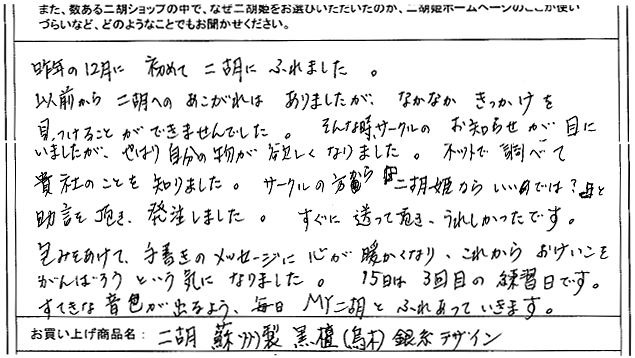 また、数ある二胡ショップの中で、なぜ二胡姫をお選びいただいたのか、二胡姫ホームページのここが使い
づらいなど、どのようなことでもお聞かせください。
昨年の12月に 初めて 二胡に ふれました 。
以前から 二胡への あこがれは ありましたが、なかなか きっかけを
見つけることができませんでした 。 そんな時、サークルの お知らせ が 目に
いましたが、やはり 自分の 物が 欲しく なりました 。 ネットで 調べて
貴社のことを 知りました 。 サークルの 方から 二胡姫から いいのでは? と
助言を 頂き、発注しました 。 すぐに 送って頂き、うれしかったです。
包みをあけて、手書きの メッセージに 心が 暖かくなり、これから おけいこを
がんばろう という 気に なりました 。 15日は 3回目の 練習日です。
すてきな 音色が出るよう、毎日 MY二胡と ふれあって いきます 。
お買い上げ商品名: 二胡 蘇州製 黒檀(烏木) 銀糸デザイン